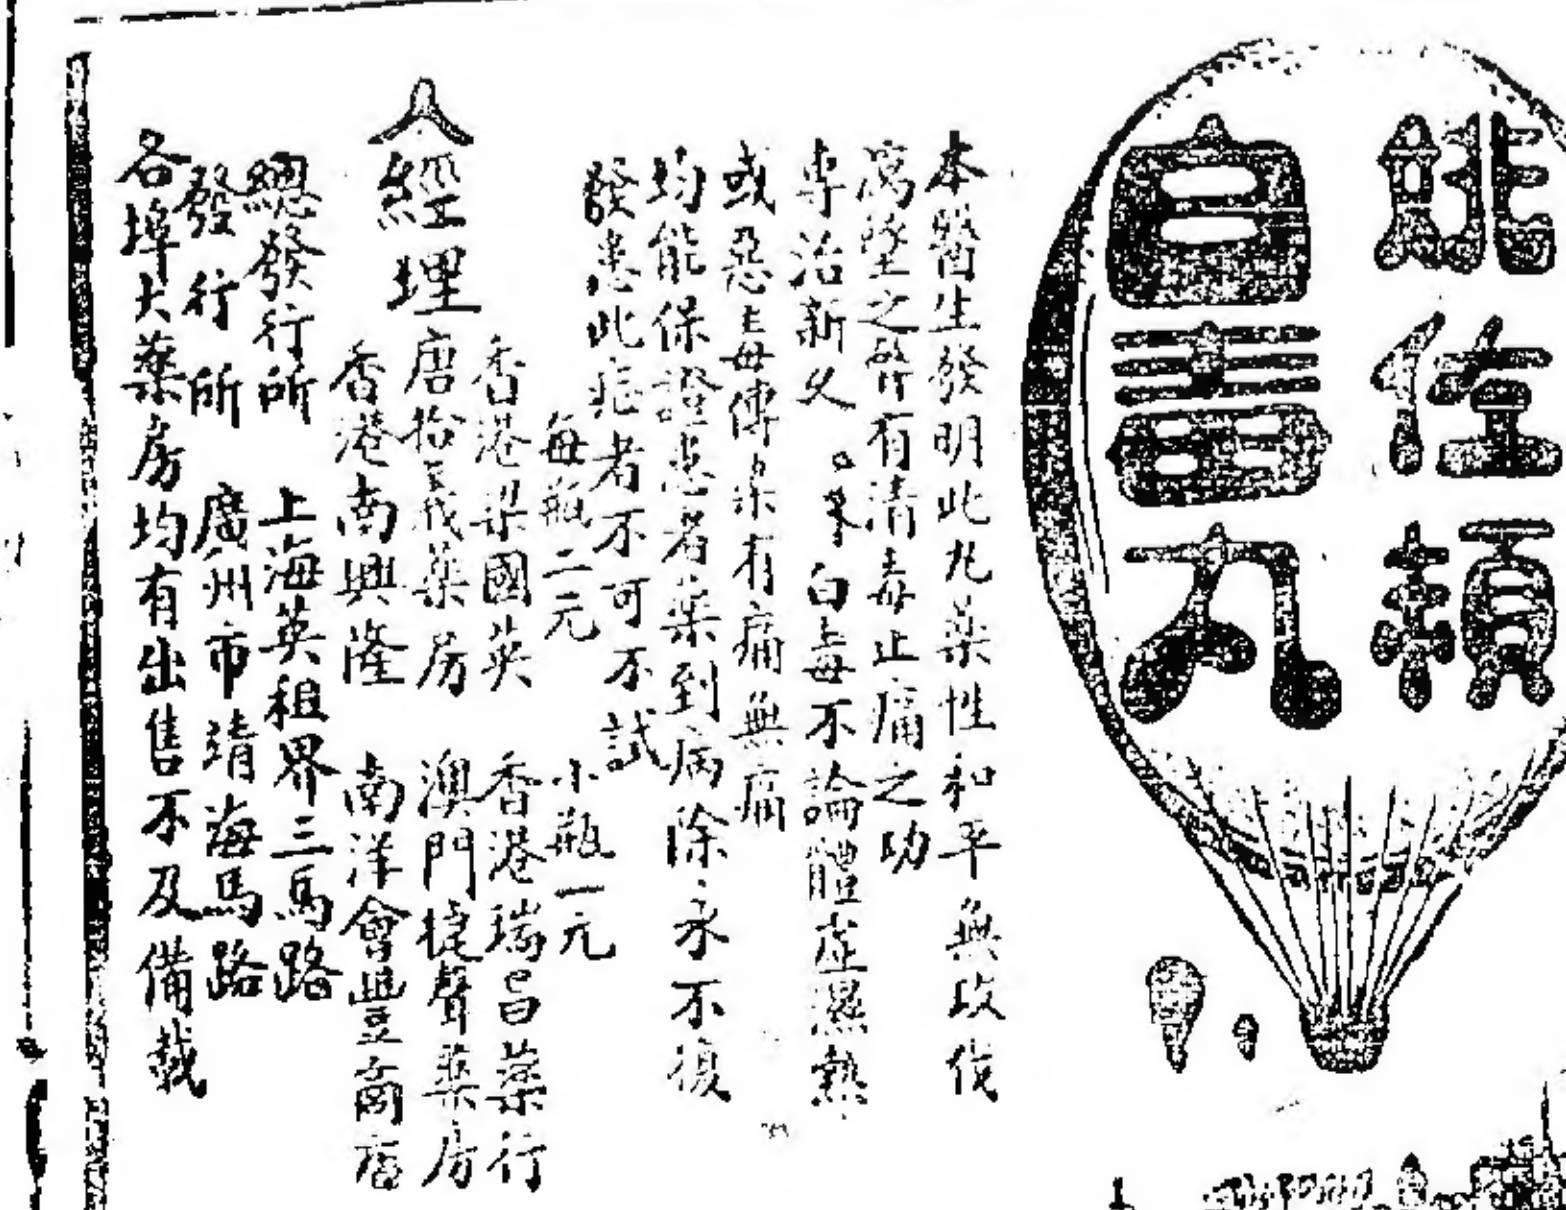 姚佐頓
白毒丸
本醫生發明此丸藥性和平無攻伐
寫墜之弊有清毒止痛之功
專治新久 白毒不論體虛濕熱
或惡毒傳染有痛無痛
均能保證患者藥到病除永不復
發患此症者不可不試
每瓶二元 小瓶一元
人經理
香港梁國英 香港瑞昌藥行
唐拾義藥房 澳門捷聲藥房
香港南興隆 南洋會豐商店
總發行所 上海英租界三馬路
發行所 廣州市靖海馬路
各埠大藥房均有出售不及備載